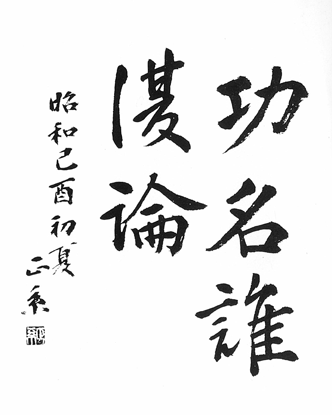 功名誰
復論
昭和己酉初夏 正